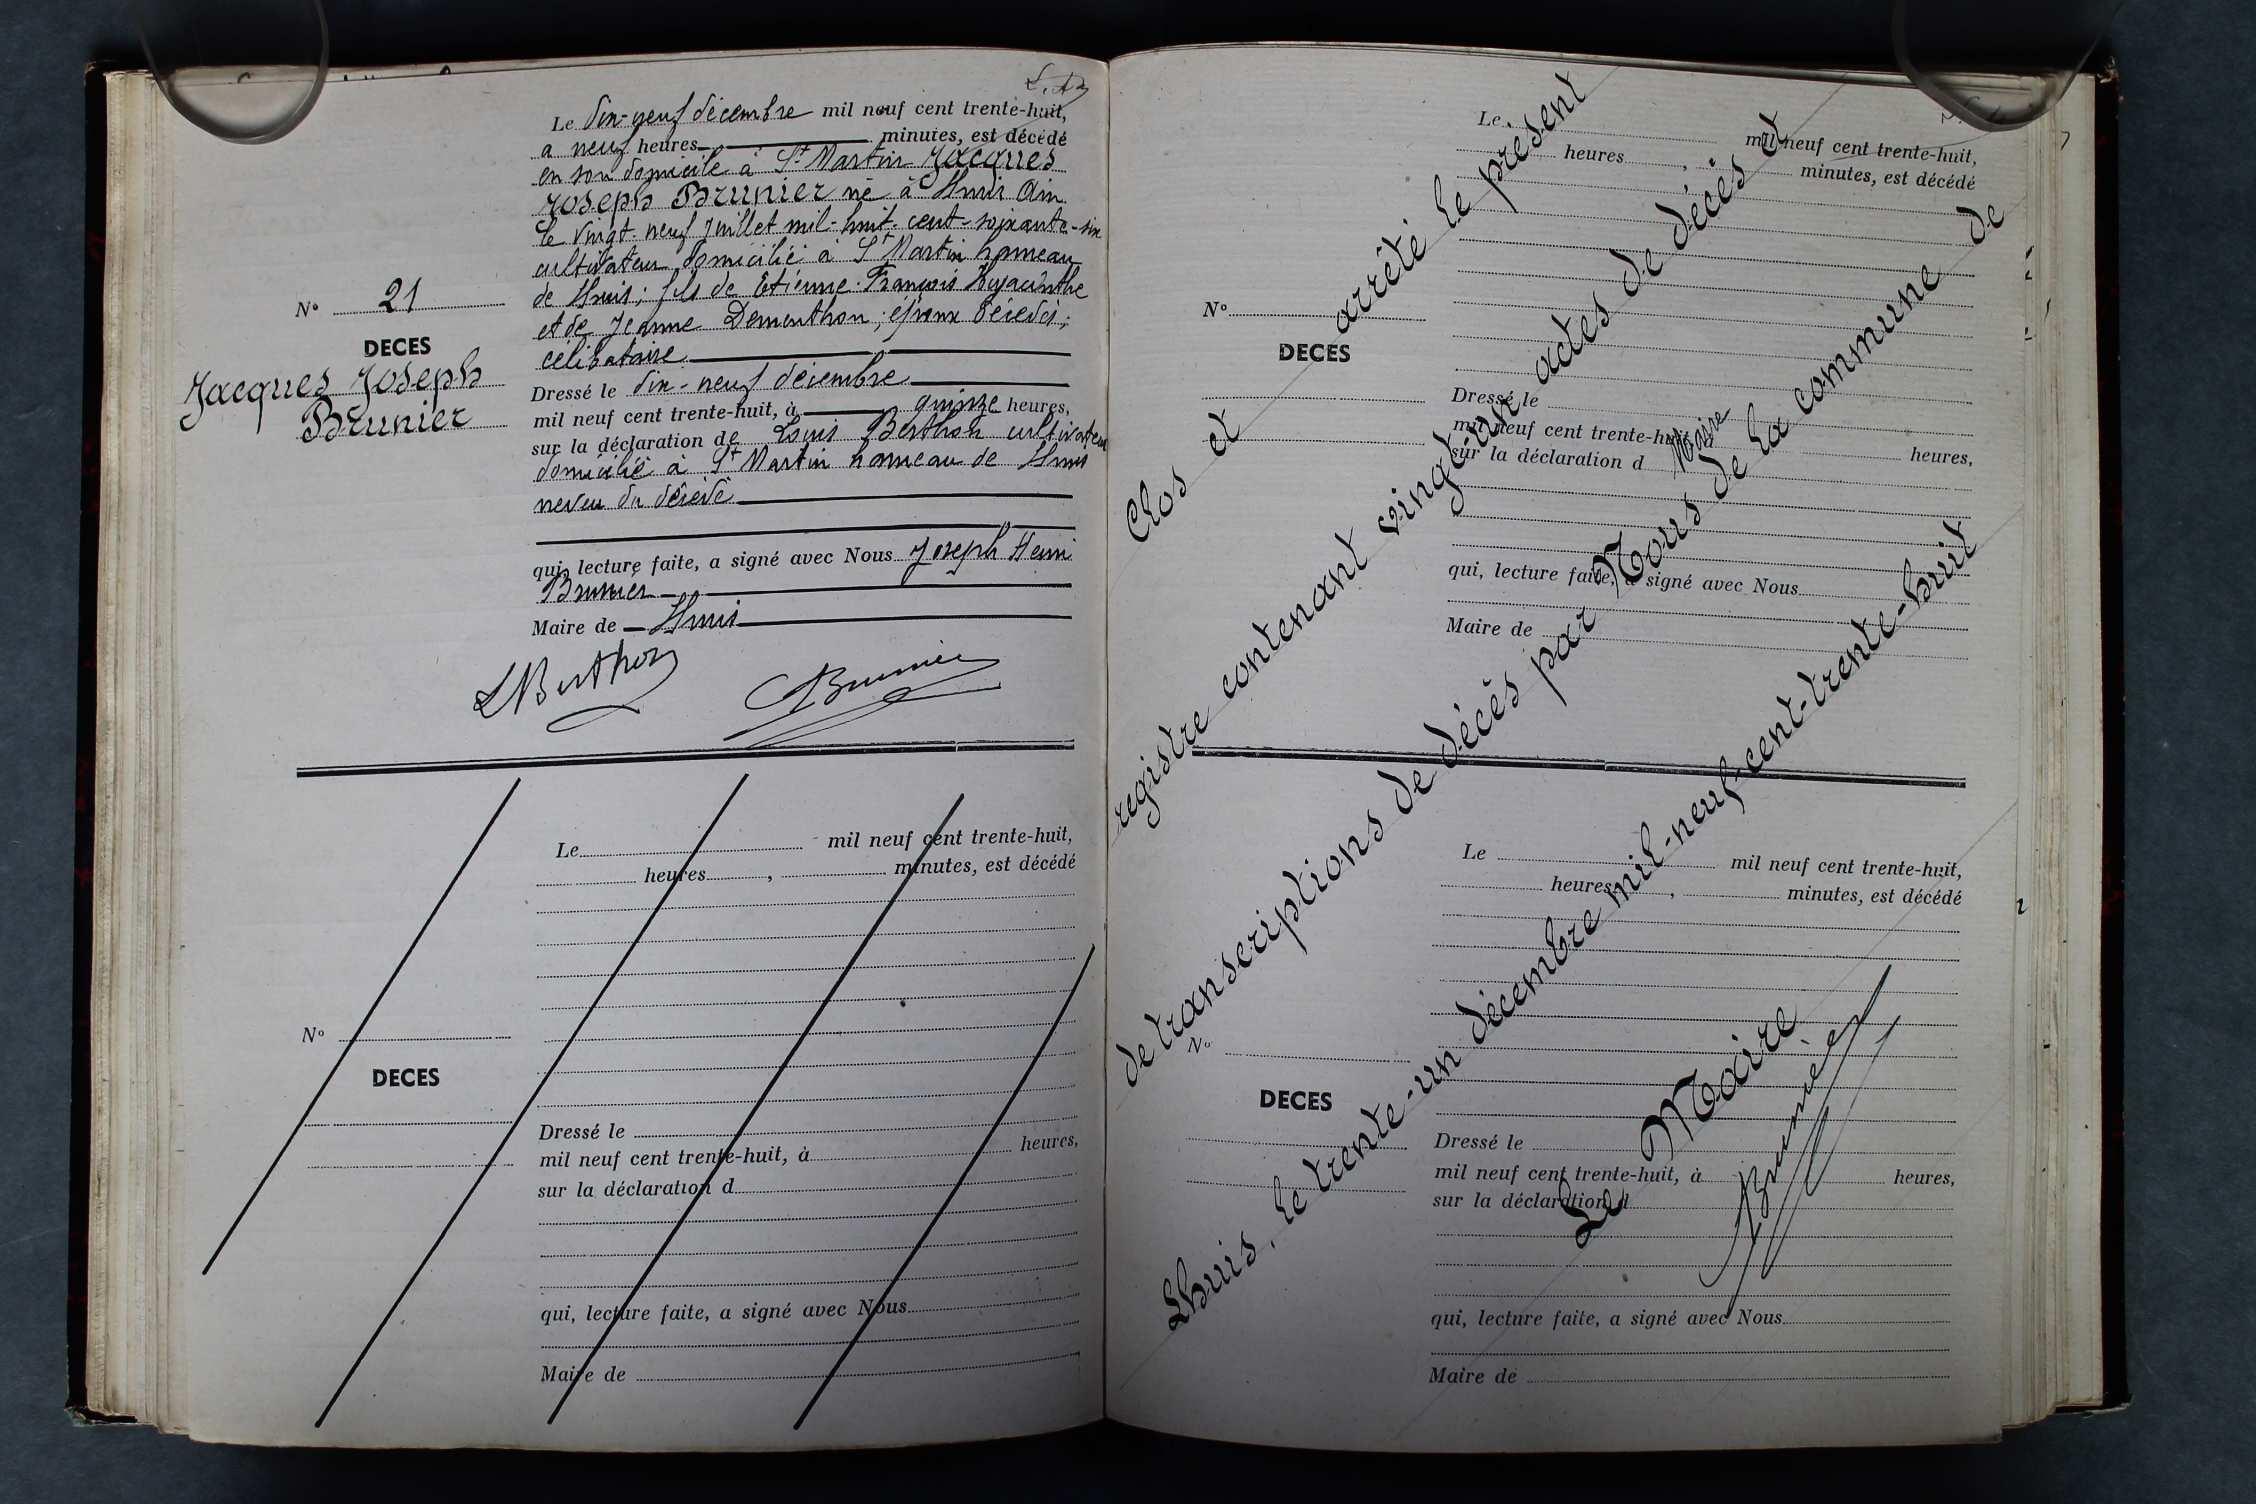 Le dix-neuf décembre mil neuf cent trente-huit,
a neuf heures minutes, est décédé
en son domicile à St Martin Jacques
Joseph Brunier né à Lhuis Ain
le vingt-neuf juillet mil-huit-cent-soixante-six
cultivateur domicilié à St Martin hameau
de Lhuis; fils de Etienne François Hyacinthe
et de Jeanne Dementhon; époux décédés;
célibataire
Dressé le dix-neuf décembre
mil neuf cent trente-huit, à quinze heures,
sur la déclaration de Louis Berthon cultivateur
domicilié à St Martin hameau de Lhuis
neveu du décédé
qui, lecture faite, a signé avec Nous Joseph Henri
Brunier
Maire de Lhuis
LBerthon
Brunier
No 21
DECES
Jacques Joseph
Brunier
Le mil neuf cent trente-huit,
heures , minutes, est décédé
No
DECES
Dressé le
mil neuf cent trente-huit, à heures,
sur la déclaration d
qui, lecture faite, a signé avec Nous
Maire de
Le mil neuf cent trente-huit,
heures , minutes, est décédé
No
DECES
Dressé le
mil neuf cent trente-huit, à heures,
sur la déclaration d
qui, lecture faite, a signé avec Nous
Maire de
Clos et arrêté le présent
registre contenant vingt-un actes de décès et
de transcriptions de décès par Nous Maire de la commune de
Lhuis, le trente-un décembre mil-neuf-cent-trente-huit
Le Maire
Brunier
Le mil neuf cent trente-huit,
heures , minutes, est décédé
No
DECES
Dressé le
mil neuf cent trente-huit, à heures,
sur la déclaration d
qui, lecture faite, a signé avec Nous
Maire de